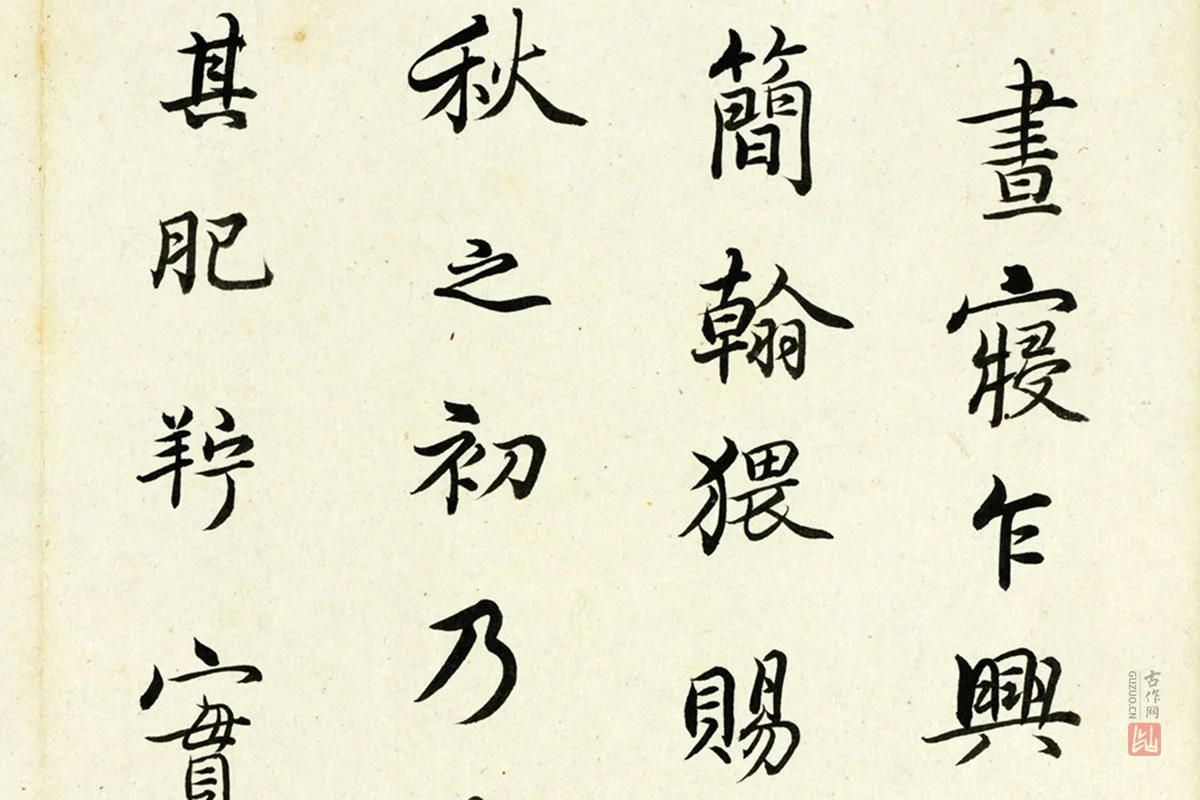 晝寝乍興
簡翰猥賜
秋之初乃
其肥羜實
古作网
GUZUO.CN